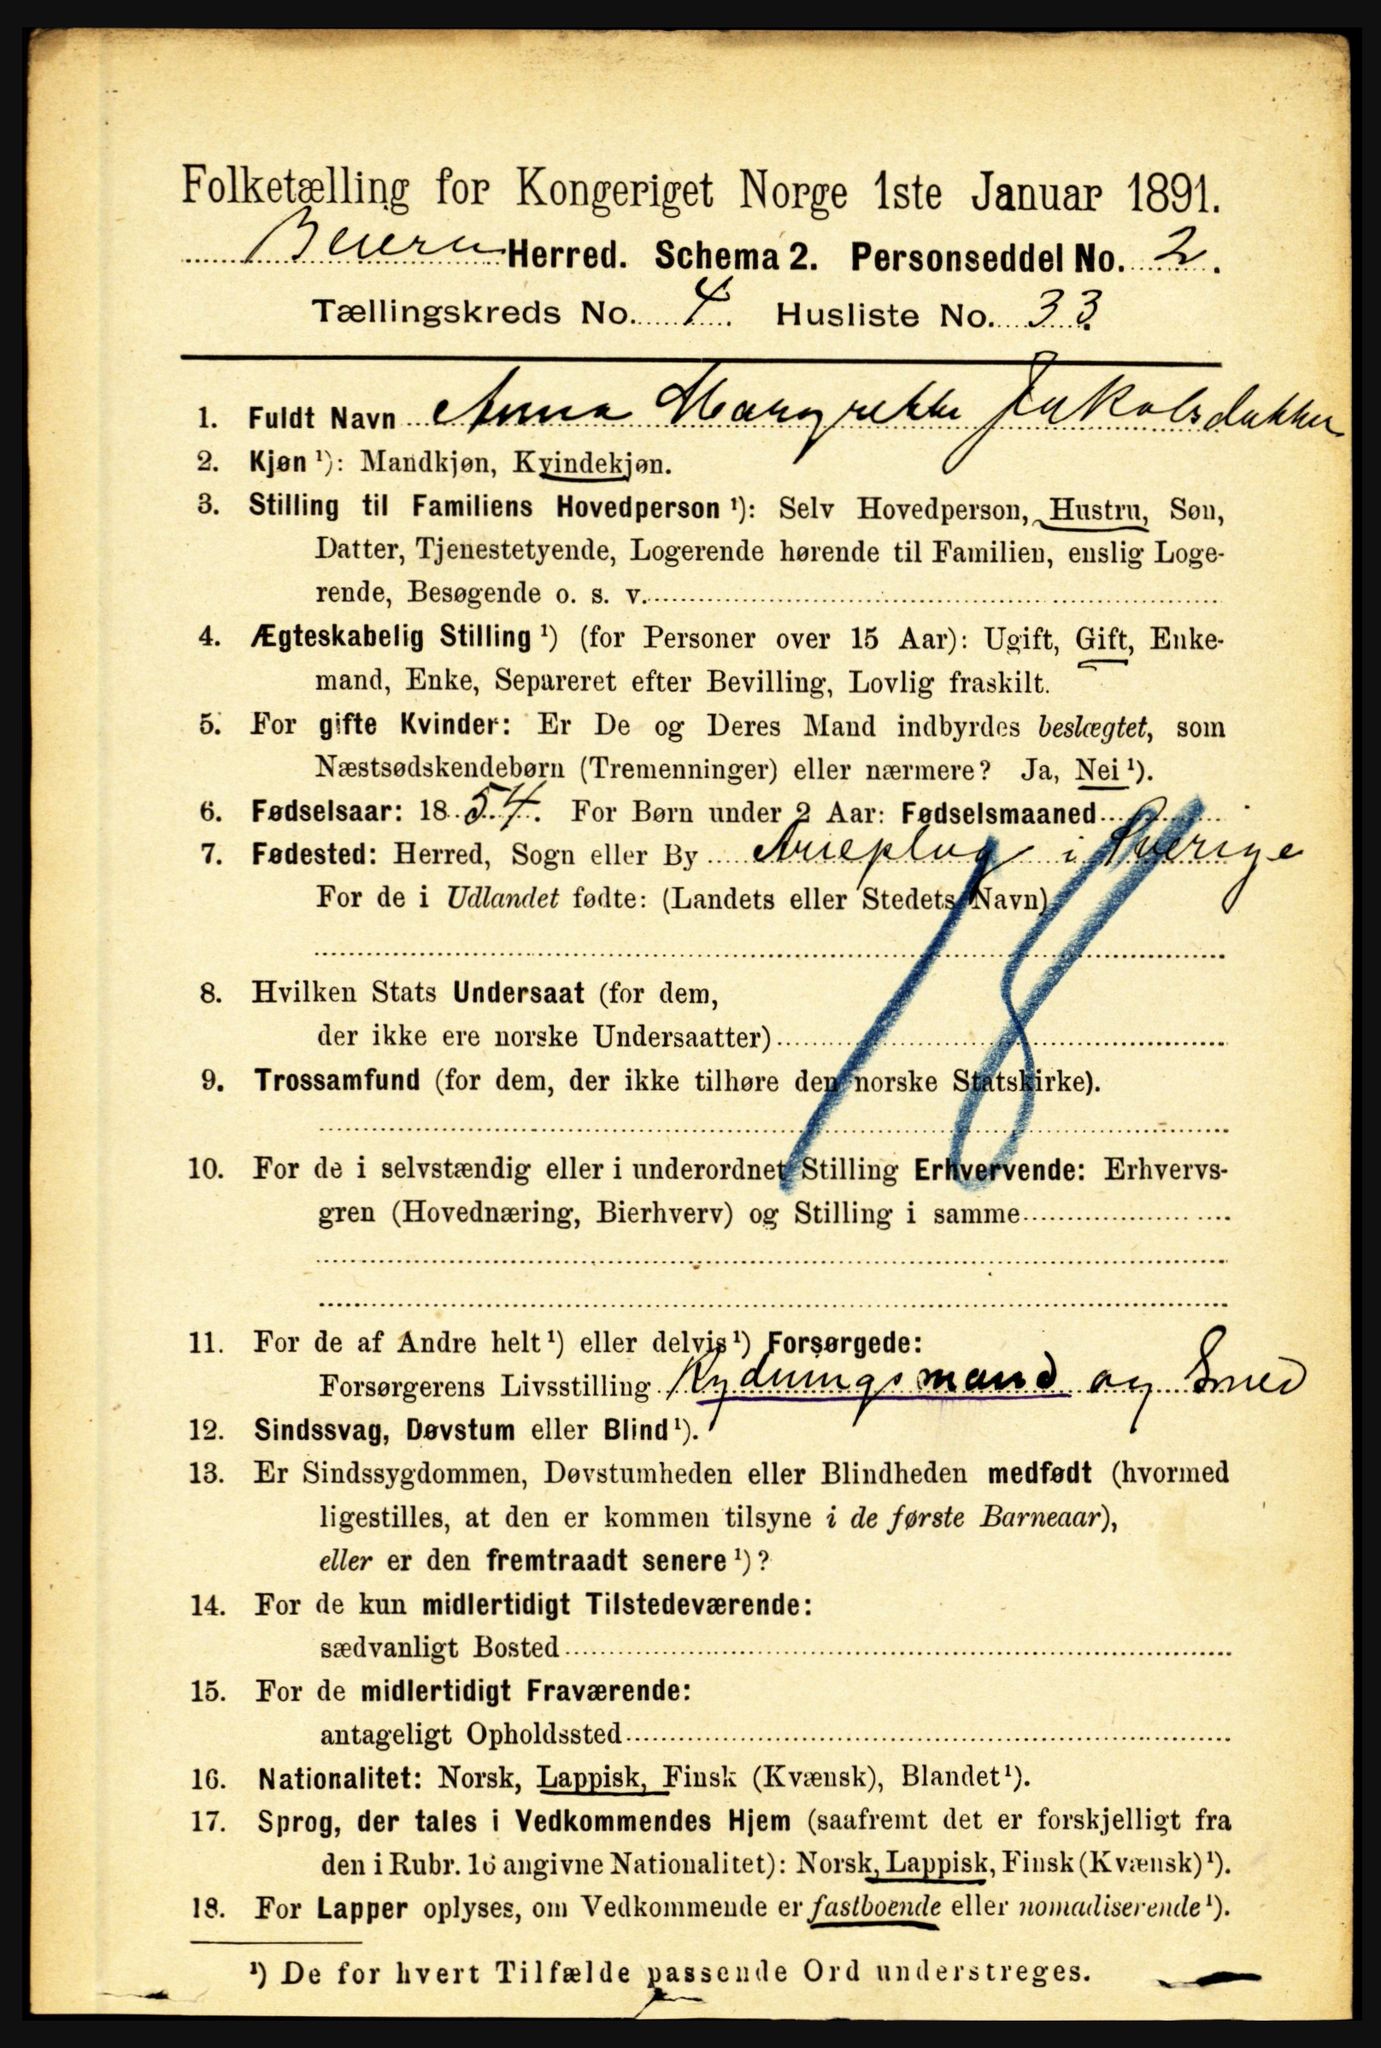 Folketælling for Kongeriget Norge 1ste Januar 1891.
Beiern Herred. Schema 2. Personseddel No. 2.
Tællingskreds No. 4. Husliste No. 33.
1. Fuldt Navn Anna Margrethe Jakobsdatter
2. Kjøn ¹): Mandkjøn, Kvindekjøn.
3. Stilling til Familiens Hovedperson ¹): Selv Hovedperson, Hustru, Søn,
Datter, Tjenestetyende, Logerende hørende til Familien, enslig Loge-
rende, Besøgende o. s. v.
4. Ægteskabelig Stilling ¹) (for Personer over 15 Aar): Ugift, Gift, Enke-
mand, Enke, Separeret efter Bevilling, Lovlig fraskilt.
5. For gifte Kvinder: Er De og Deres Mand indbyrdes beslægtet, som
Næstsødskendebørn (Tremenninger) eller nærmere? Ja, Nei ¹).
6. Fødselsaar: 1854. For Børn under 2 Aar: Fødselsmaaned
7. Fødested: Herred, Sogn eller By Arieplog i Sverige
For de i Udlandet fødte: (Landets eller Stedets Navn)
18
8. Hvilken Stats Undersaat (for dem,
der ikke ere norske Undersaatter)
9. Trossamfund (for dem, der ikke tilhøre den norske Statskirke).
10. For de i selvstændig eller i underordnet Stilling Erhvervende: Erhvervs-
gren (Hovednæring, Bierhverv) og Stilling i samme
11. For de af Andre helt ¹) eller delvis ¹) Forsørgede:
Forsørgerens Livsstilling Rydningsmand og Smed
12. Sindssvag, Døvstum eller Blind ¹).
13. Er Sindssygdommen, Døvstumheden eller Blindheden medfødt (hvormed
ligestilles, at den er kommen tilsyne i de første Barneaar),
eller er den fremtraadt senere ¹)?
14. For de kun midlertidigt Tilstedeværende:
sædvanligt Bosted
15. For de midlertidigt Fraværende:
antageligt Opholdssted
16. Nationalitet: Norsk, Lappisk, Finsk (Kvænsk), Blandet ¹).
17. Sprog, der tales i Vedkommendes Hjem (saafremt det er forskjelligt fra
den i Rubr. 16 angivne Nationalitet): Norsk, Lappisk, Finsk (Kvænsk) ¹).
18. For Lapper oplyses, om Vedkommende er fastboende eller nomadiserende ¹).
¹) De for hvert Tilfælde passende Ord understreges.